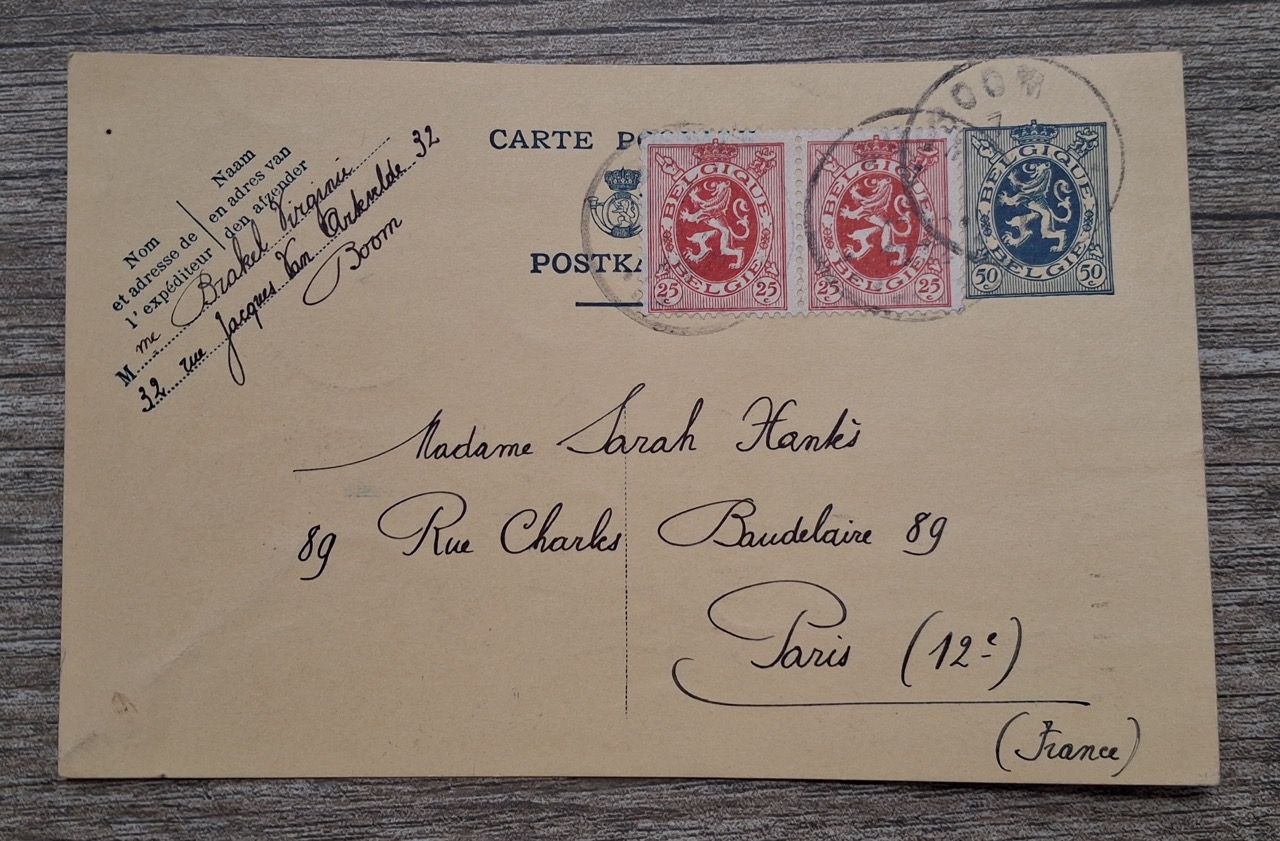 CARTE
POSTKA
Nom
et adresse de
l'expéditeur
Naam
en adres van
den afzender
M me Brakel Virginie
32 rue Jacques Van Artevelde 32
Boom
BELGIQUE
BELGIE
25 25
BELGIQUE
BELGIE
25 25
BOOM
7
BELGIQUE
BELGIE
50 50
Madame Sarah Hanks
89 Rue Charles Baudelaire 89
Paris (12e)
(France)